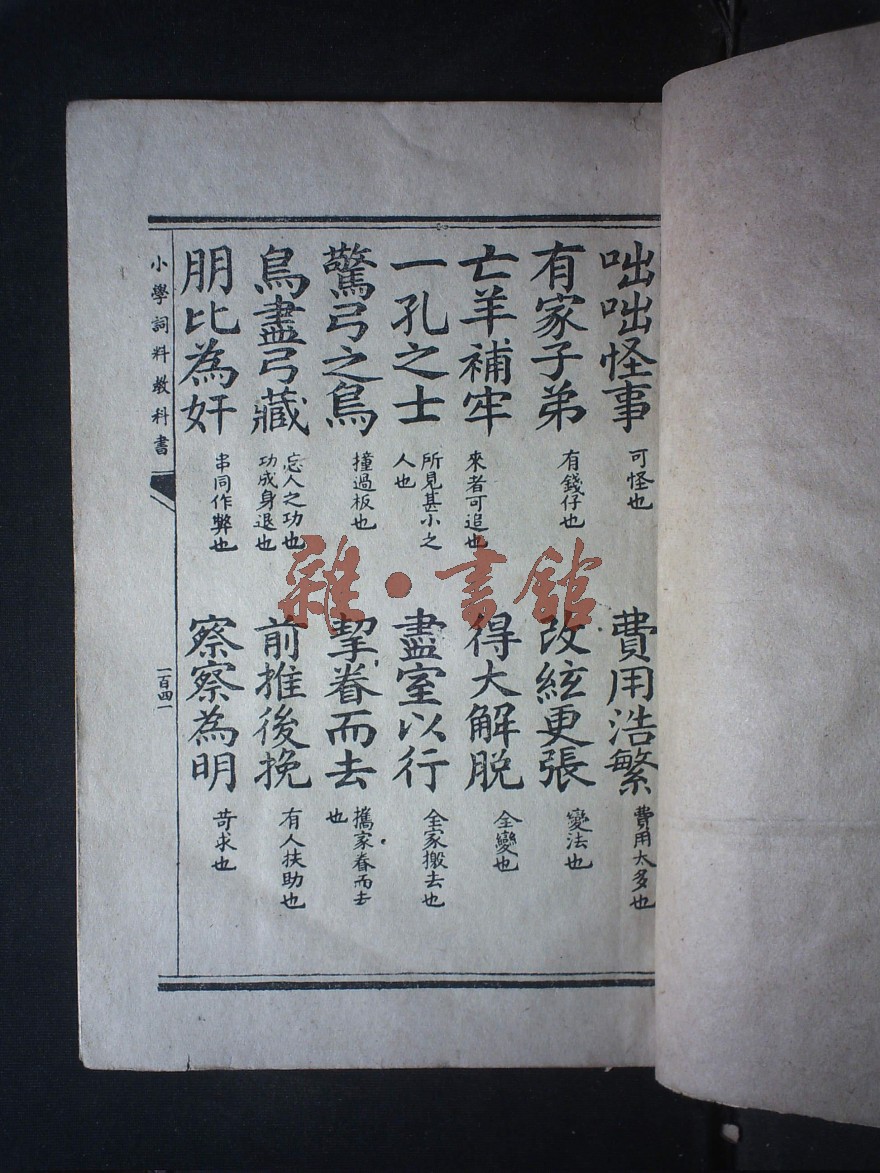 咄咄怪事
可怪也
費用浩繁
費用太多也
有家子弟
有錢仔也
改絃更張
變法也
亡羊補牢
來者可追也
得大解脫
全變也
一孔之士
所見甚小之
人也
盡室以行
全家搬去也
驚弓之鳥
撞過板也
挈眷而去
攜家眷而去
也
鳥盡弓藏
忘人之功也
功成身退也
前推後挽
有人扶助也
朋比為奸
串同作弊也
察察為明
苛求也
小學詞料教科書
一百四一
雜·書館